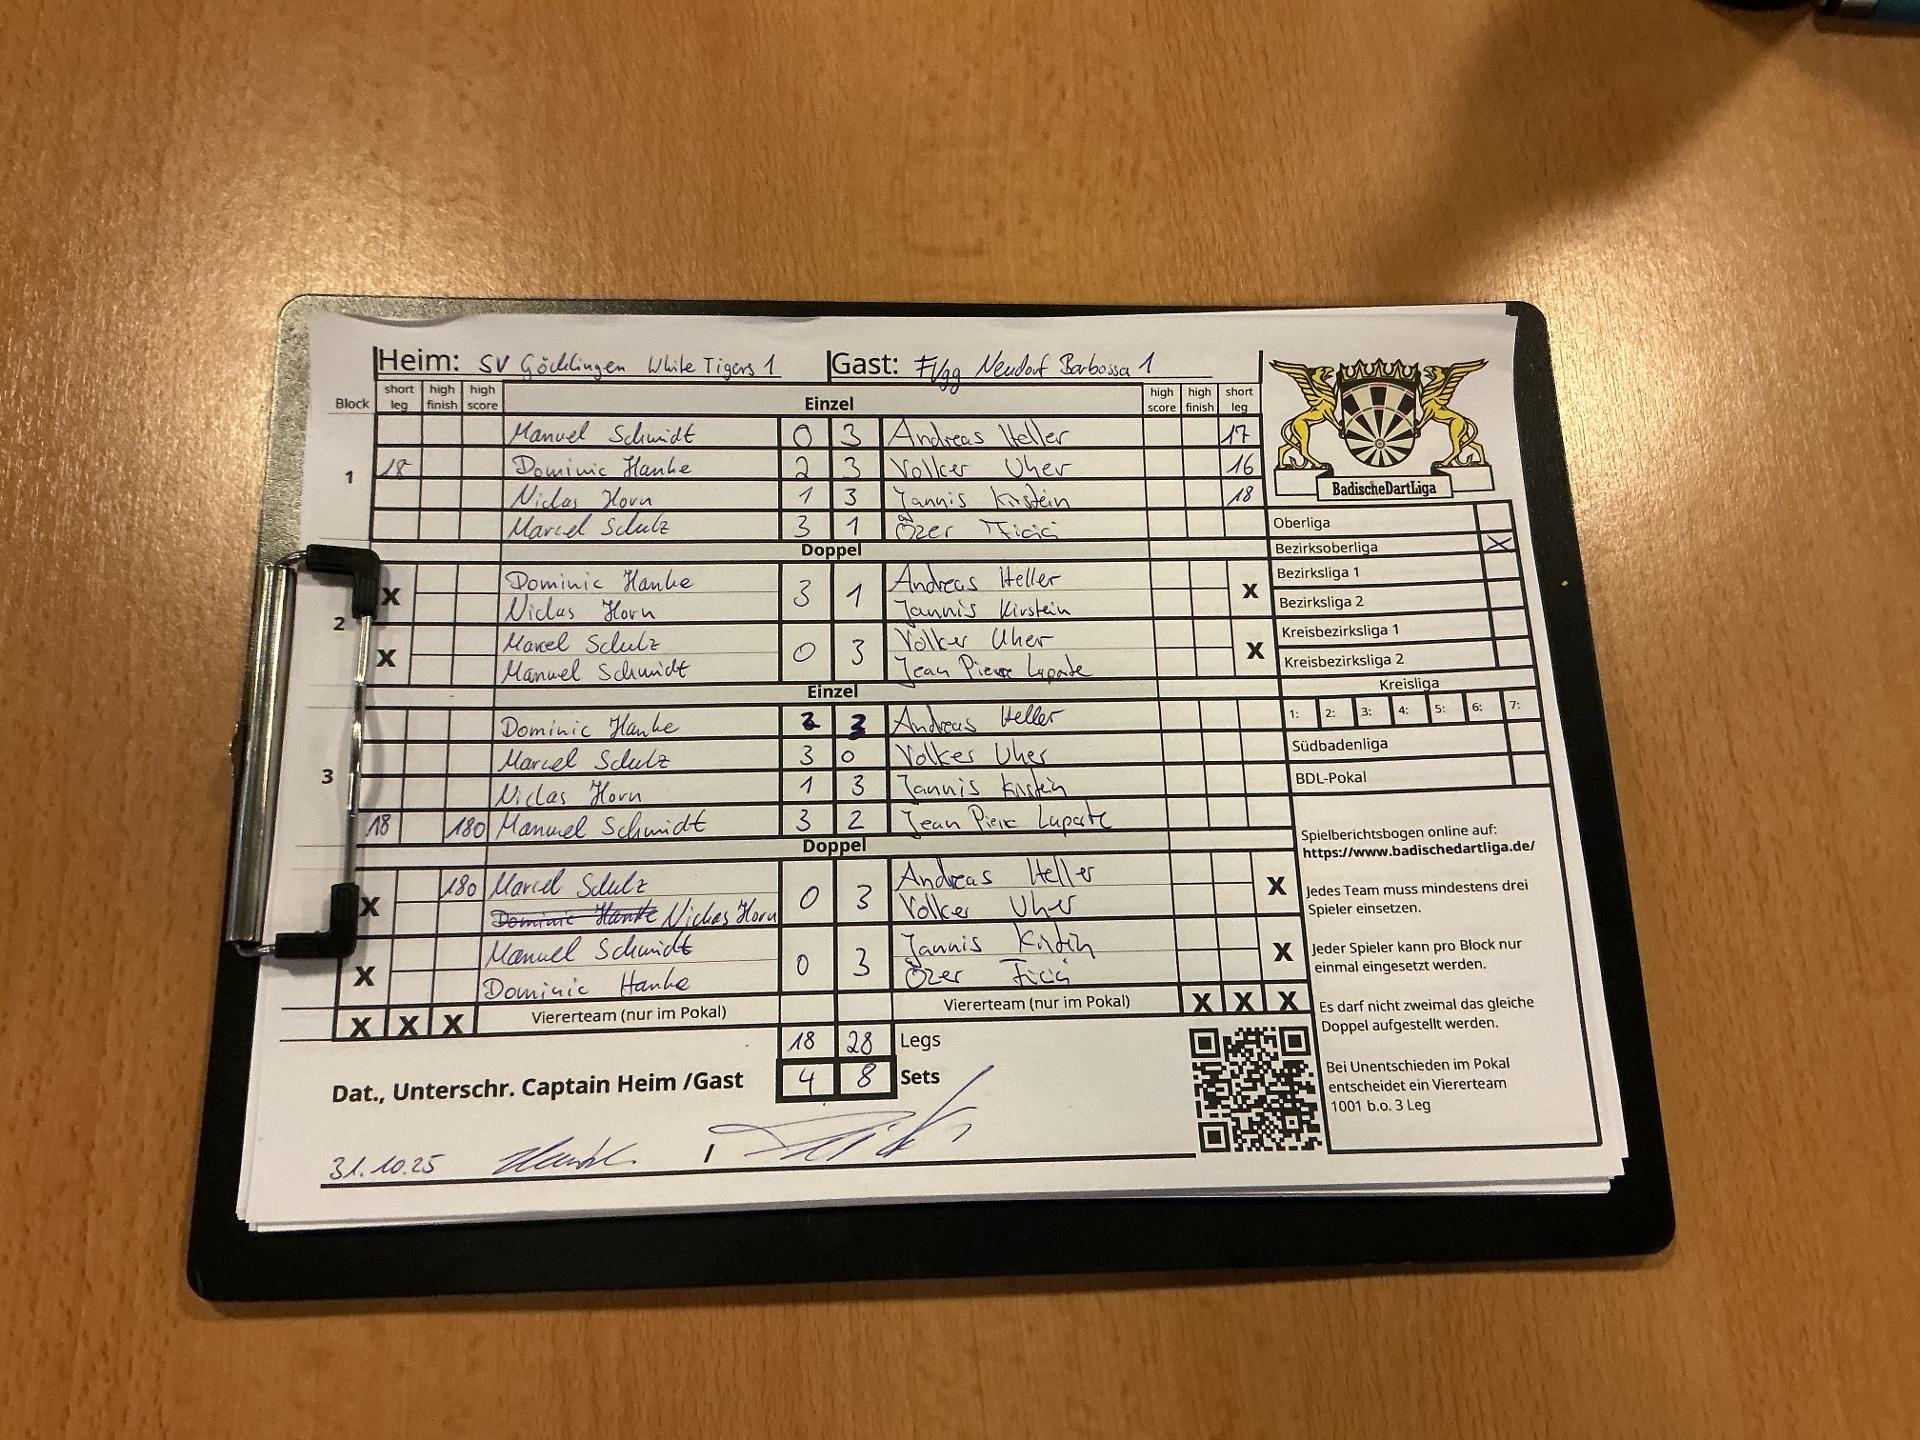 Heim: SV Göcklingen White Tigers 1 Gast: FVgg Neudorf Barbossa 1
Block short leg high finish high score Einzel high score high finish short leg
1
Manuel Schmidt 0 3 Andreas Heller 17
18 Dominic Hanke 2 3 Volker Uher 16
Niclas Horn 1 3 Jannis Kirstein 18
Marcel Schulz 3 1 Özer
Doppel
2
X Dominic Hanke 3 1 Andreas Heller X
Niclas Horn Jannis Kirstein
X Marcel Schulz 0 3 Volker Uher X
Manuel Schmidt Jean Pierre Laporte
Einzel
3
Dominic Hanke 2 3 Andreas Heller
Marcel Schulz 3 0 Volker Uher
Niclas Horn 1 3 Jannis Kirstein
18 180 Manuel Schmidt 3 2 Jean Pierre Laporte
Doppel
X 180 Marcel Schulz 0 3 Andreas Heller X
Dominic Hanke Niclas Horn Volker Uher
X Manuel Schmidt 0 3 Jannis Kirstein X
Dominic Hanke Özer
X X X Viererteam (nur im Pokal) Viererteam (nur im Pokal) X X X
18 28 Legs
Dat., Unterschr. Captain Heim /Gast 4 8 Sets
31.10.25 /
BadischeDartLiga
Oberliga
Bezirksoberliga X
Bezirksliga 1
Bezirksliga 2
Kreisbezirksliga 1
Kreisbezirksliga 2
Kreisliga
1: 2: 3: 4: 5: 6: 7:
Südbadenliga
BDL-Pokal
Spielberichtsbogen online auf:
https://www.badischedartliga.de/
Jedes Team muss mindestens drei
Spieler einsetzen.
Jeder Spieler kann pro Block nur
einmal eingesetzt werden.
Es darf nicht zweimal das gleiche
Doppel aufgestellt werden.
Bei Unentschieden im Pokal
entscheidet ein Viererteam
1001 b.o. 3 Leg